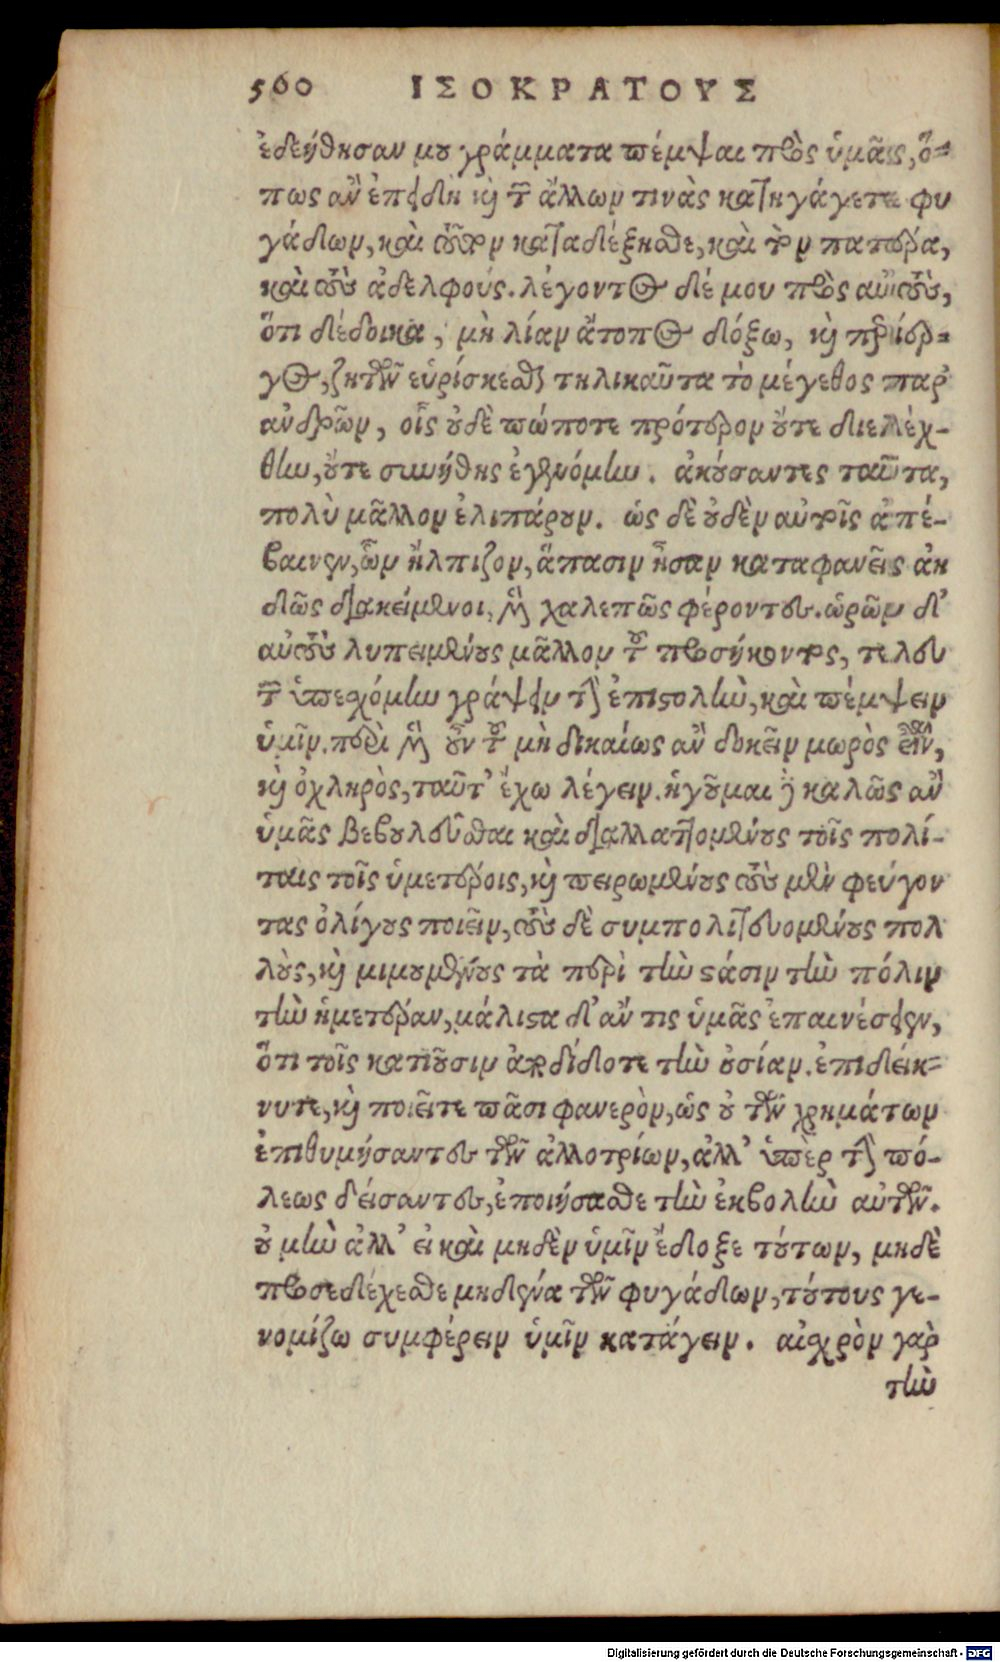 560 ΙΣΟΚΡΑΤΟΥΣ
ἐδεήθησαν μου γράμματα πέμψαι πρὸς ὑμᾶς, ὅ-
πως ἂν ἐπειδὴ καὶ τῶν ἄλλων τινὰς κατηγάγετε φυ
γάδων, καὶ τοῦτον καταδέξησθε, καὶ τὸν πατέρα,
καὶ τοὺς ἀδελφούς. λέγοντος δέ μου πρὸς αὐτοὺς,
ὅτι δέδοικα, μὴ λίαν ἄτοπος δόξω, καὶ περίερ-
γος, ζητῶν εὑρίσκεσθαι τηλικαῦτα τὸ μέγεθος παρ'
ἀνδρῶν, οἷς οὐδὲ πώποτε πρότερον οὔτε διελέχ-
θην, οὔτε συνήθης ἐγενόμην. ἀκούσαντες ταῦτα,
πολὺ μᾶλλον ἐλιπάρουν. ὡς δὲ οὐδὲν αὐτοῖς ἀπέ-
βαινεν, ὧν ἤλπιζον, ἅπασιν ἦσαν καταφανεῖς ἀη
δῶς διακείμενοι, καὶ χαλεπῶς φέροντες. ὁρῶν δ'
αὐτοὺς λυπουμένους μᾶλλον τοῦ προσήκοντος, τελευ
τῶν ὑπεσχόμην γράψειν τὴν ἐπιστολὴν, καὶ πέμψειν
ὑμῖν. περὶ μὲν οὖν τοῦ μὴ δικαίως ἂν δοκεῖν μωρὸς εἶναι,
καὶ ὀχληρὸς, ταῦτ' ἔχω λέγειν. ἡγοῦμαι δὲ καλῶς ἂν
ὑμᾶς βεβουλεῦσθαι καὶ διαλλαττομένους τοῖς πολί-
ταις τοῖς ὑμετέροις, καὶ πειρωμένους τοὺς μὲν φεύγον
τας ὀλίγους ποιεῖν, τοὺς δὲ συμπολιτευομένους πολ
λοὺς, καὶ μιμουμένους τὰ περὶ τὴν στάσιν τὴν πόλιν
τὴν ἡμετέραν, μάλιστα δ' ἄν τις ὑμᾶς ἐπαινέσειεν,
ὅτι τοῖς κατιοῦσιν ἀποδίδοτε τὴν οὐσίαν. ἐπιδείκ-
νυτε, καὶ ποιεῖτε πᾶσι φανερὸν, ὡς οὐ τῶν χρημάτων
ἐπιθυμήσαντες τῶν ἀλλοτρίων, ἀλλ' ὑπὲρ τῆς πό-
λεως δείσαντες, ἐποιήσασθε τὴν ἐκβολὴν αὐτῶν.
οὐ μὴν ἀλλ' εἰ καὶ μηδὲν ὑμῖν ἔδοξε τούτων, μηδὲ
προσεδέχεσθε μηδένα τῶν φυγάδων, τούτους γε-
νομίζω συμφέρειν ὑμῖν κατάγειν. αἰσχρὸν γὰρ
τὴν
Digitalisierung gefördert durch die Deutsche Forschungsgemeinschaft - DFG